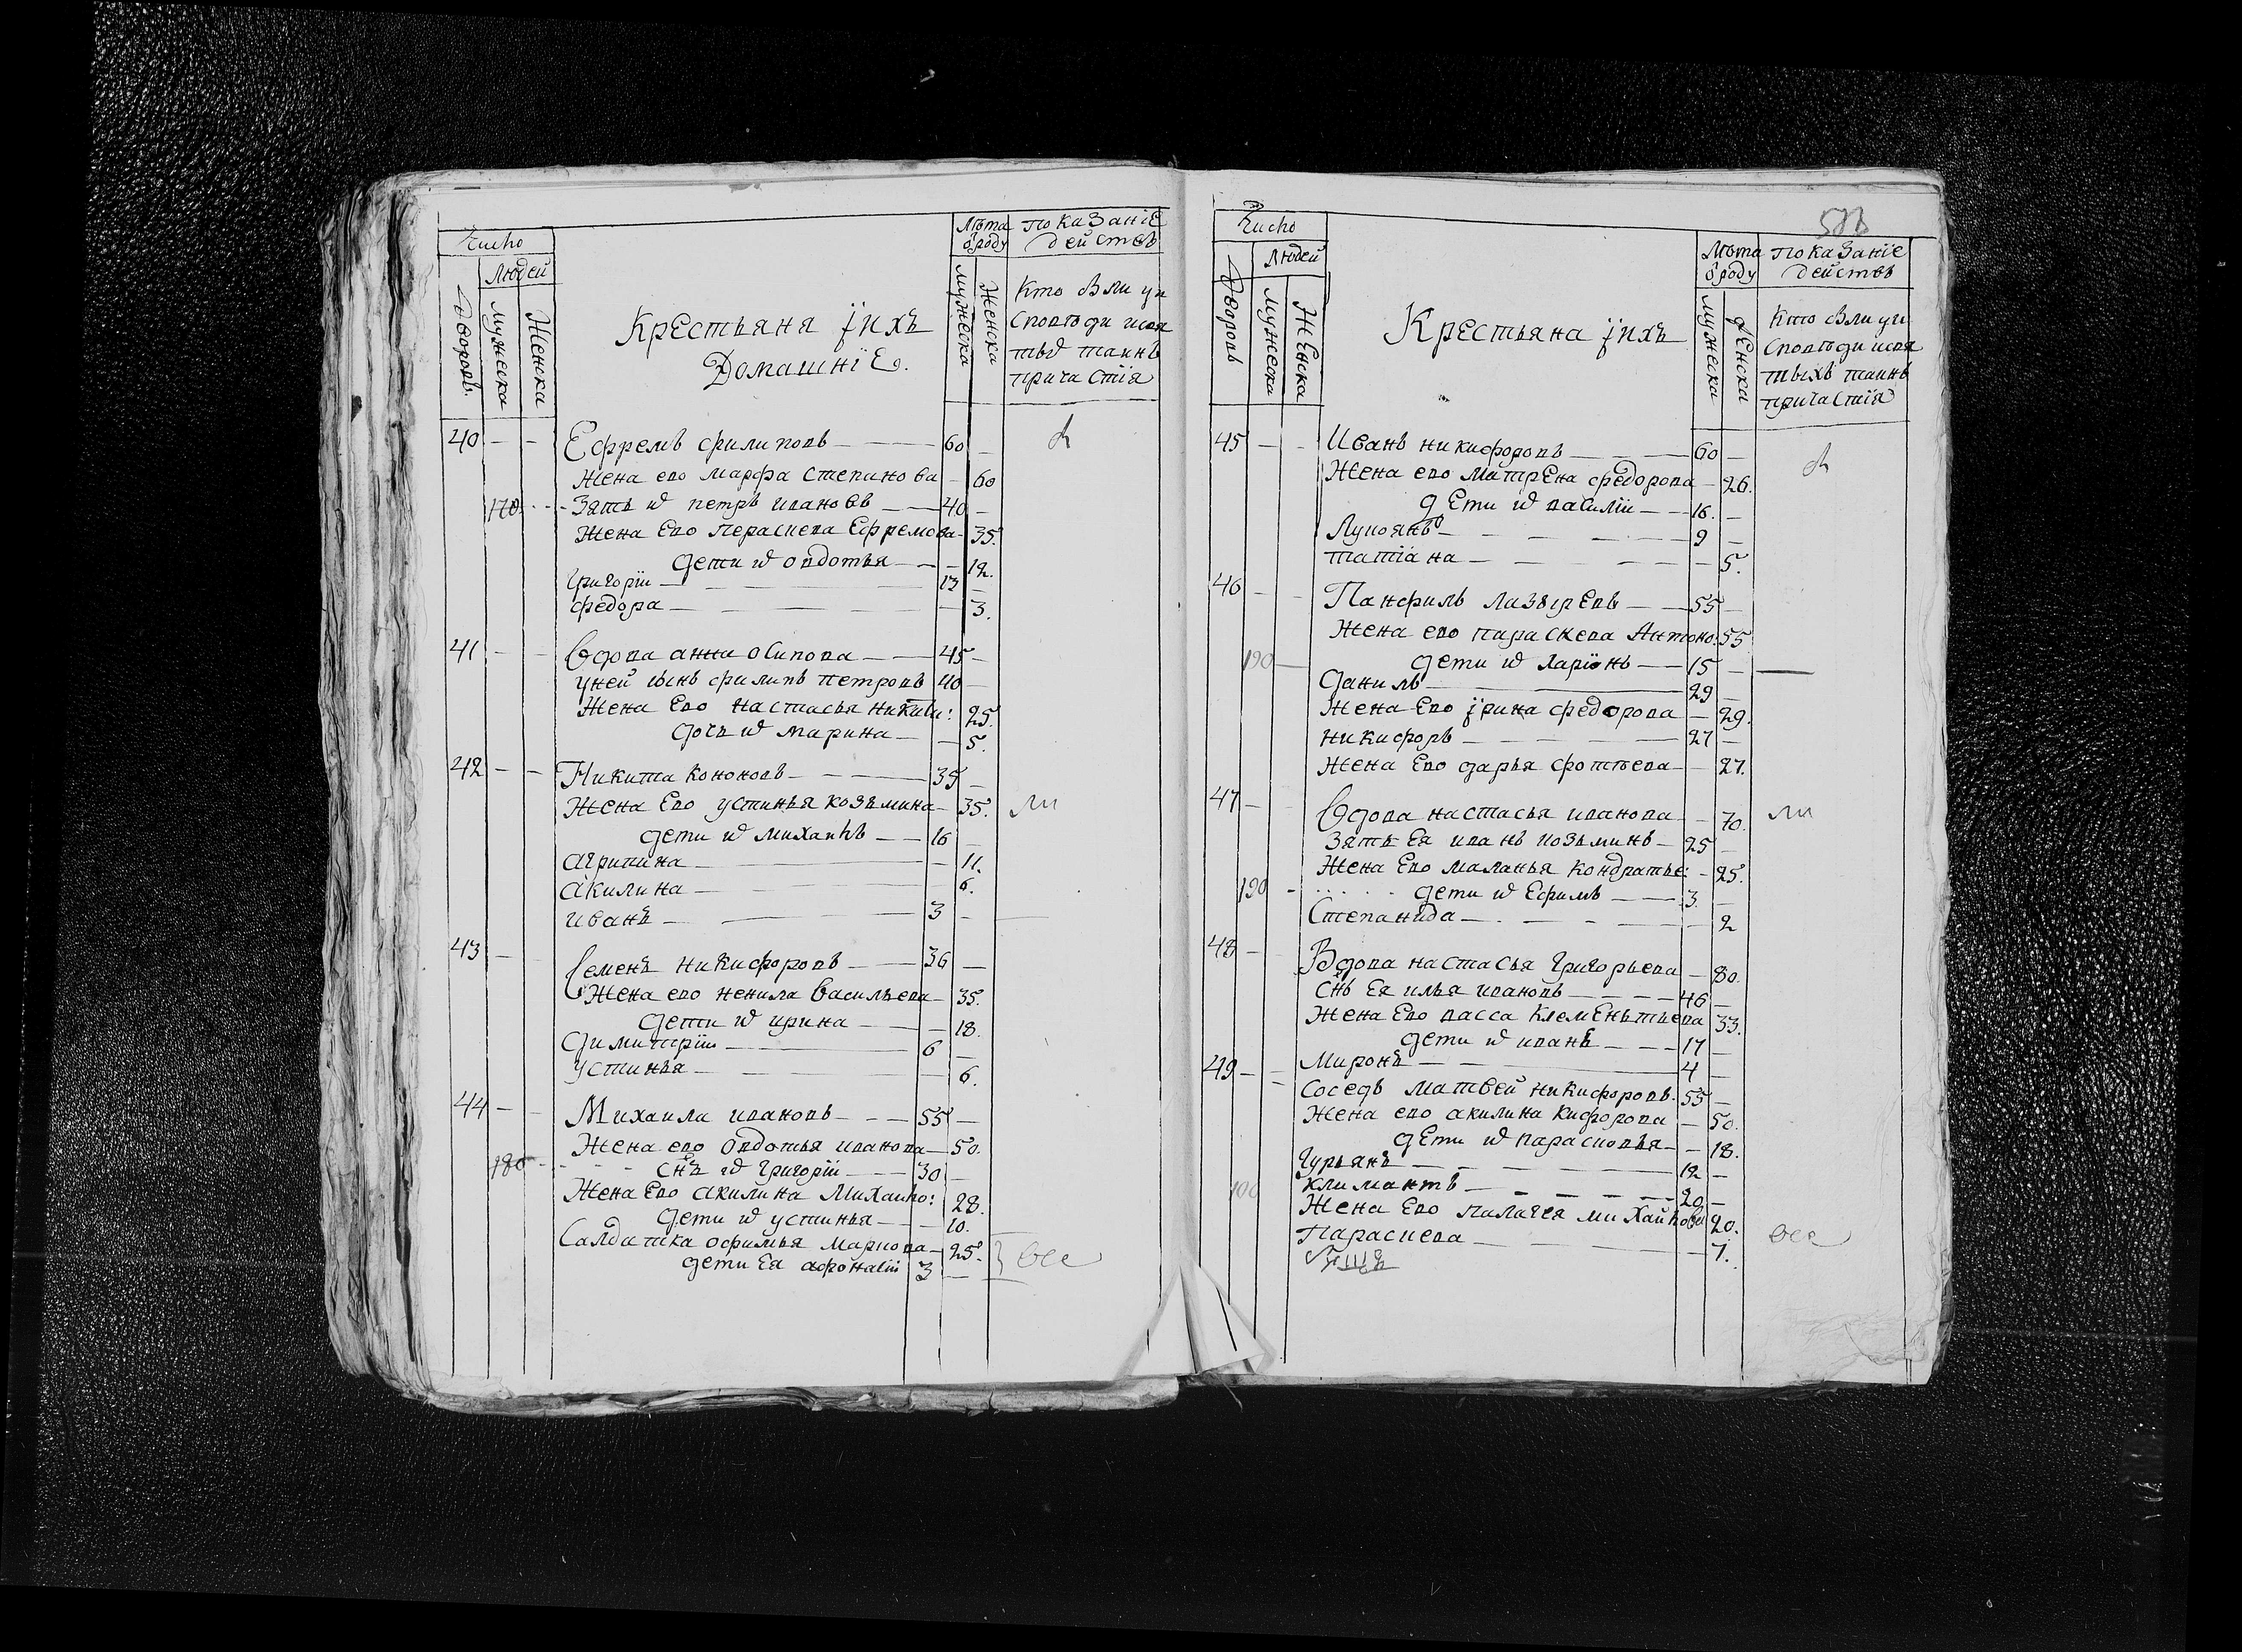 Число
Людей
Дворовъ
мужеска
Женска
Крестьяня їихъ
Домашнїе
Лѣта
ѿроду
мужеска
Женска
показанїе
действъ
кто были уи
споведи исвя
тыѯ таинъ
причастїя
40 — — Ефремъ филиповъ — 60 —
жена ево марфа степанова — 60
170 Зять иѿ петръ ивановъ — 40 —
жена Ево Пераскева Ефремова — 35.
дети иѿ овдотья — — 12.
григорїи — 13 —
федора — — 3.
41 — — Вдова анна осипова — 45 —
уней сынъ филипъ петровъ 40 —
жена Ево настасья никити: 25.
дочь иѿ марина — — 5.
42 — — Никита кононовъ — 35 —
жена Ево устинья козьмина — 35.
дети иѿ михаилъ — 16 —
агрипина — — 11.
акилина — 6.
иванъ — 3 —
43 — Семенъ никифоровъ — 36 —
жена ево ненила васильева — 35.
дети иѿ ирина — — 18.
димитрїи — 6 —
устинья — — 6.
44 — — Михаила ивановъ — 55 —
жена ево Овдотья иванова — 50.
180 снъ иѿ григорїи — 30 —
жена Ево акилина Михаило: 28.
дети иѿ устинья — 10.
Салдатка офимья Маркова — 25.
дети Ея афонасїи 3 —
все
Число
Людей
Дворовъ
мужеска
Женска
Крестьяна їихъ
Лѣта
ѿроду
мужеска
Женска
показанїе
действъ
кто были уи
споведи исвя
тыхъ таинъ
причастїя
45 — — Иванъ никифоровъ — 60 —
жена ево матрена федорова — 26.
дети иѿ василїи — 16. —
Лукоянъ — 9 —
татїана — — 5.
46 — — Панфилъ лазыревъ — 55 —
жена ево параскева Антоно: 55
190 — дети иѿ ларїонъ — 15 —
данилъ — 29 —
жена Ево їрина федорова — 29.
никифоръ — 27 —
жена Ево дарья фотѣева — 27.
47 — Вдова настасья иванова — 70.
зять Ея иванъ козьминъ — 25 —
жена Ево маланья кондратье: — 25.
190 — дети иѿ Ефимъ — 3. —
Степанида — — 2
48 — Вдова настасья григорьева — 80.
снъ Ея илья ивановъ — 46 —
жена Ево васса клеменьтьева 33.
дети иѿ иванъ — 17 —
Миронъ — 4 —
49 — — Соседъ матвей никифоровъ. 55 —
жена ево акилина кифорова — 50.
дети иѿ парасковья — — 18.
гурьянъ — 12 —
климантъ — 20 —
жена Ево палагея михайлова 20.
Параскева — — 7.
все